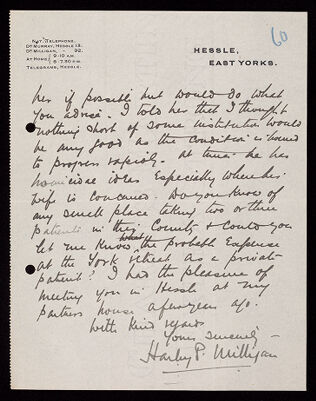 NAT. TELEPHONE.
DR MURRAY, HESSLE 13.
DR MILLIGAN, - 92.
AT HOME 9-10 AM
6 7.30 P.M.
TELEGRAMS, HESSLE.
HESSLE,
EAST YORKS.
60
her if possible but would do what
you advise. I told her that I thought
nothing short of some institution would
be any good as the condition is bound
to progress rapidly. At times he has
homicidal ideas especially where his
wife is concerned. Do you know of
any small place taking two or three
patients in this County & could you
let me know what the probable expense
at the York retreat as a private
patient? I had the pleasure of
meeting you in Hessle at my
partners house a few years ago.
With kind regards
Yours sincerely
Harley P. Milligan